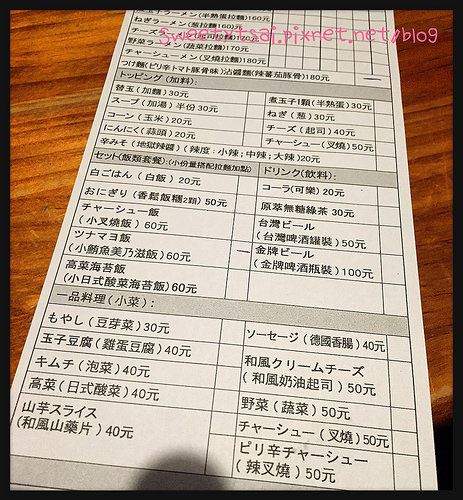 (半熟蛋拉麵)160元
ねぎラーメン(葱拉麵)160元
sweetytsai.pixnet.net/blog
野菜ラーメン(蔬菜拉麵)170元
チャーシューメン(叉燒拉麵)180元
つけ麵(ピリ辛トマト豚骨味)沾醬麵(辣蕃茄豚骨)180元
トッピング(加料):
替玉(加麵)30元
煮玉子1顆(半熟蛋)30元
スープ(加湯)半份 30元
ねぎ(葱)30元
コーン(玉米)20元
チーズ(起司)40元
にんにく(蒜頭)20元
チャーシュー(叉燒)50元
辛みそ(地獄辣醬)(辣度:小辣;中辣;大辣)20元
セット(飯類套餐):(小份量搭配拉麵加點)
ドリンク(飲料):
白ごはん(白飯)20元
コーラ(可樂)20元
おにぎり(香鬆飯糰2顆)50元
原萃無糖綠茶 30元
チャーシュー飯
(小叉燒飯)60元
台灣ビール
(台灣啤酒罐裝)50元
ツナマヨ飯
(小鮪魚美乃滋飯)60元
金牌ビール
(金牌啤酒瓶裝)100元
高菜海苔飯
(小日式酸菜海苔飯)60元
一品料理(小菜):
もやし(豆芽菜)30元
ソーセージ(德國香腸)40元
玉子豆腐(雞蛋豆腐)40元
和風クリームチーズ
(和風奶油起司)50元
キムチ(泡菜)40元
高菜(日式酸菜)40元
野菜(蔬菜)50元
山芋スライス
(和風山藥片)40元
チャーシュー(叉燒)50元
ピリ辛チャーシュー
(辣叉燒)50元